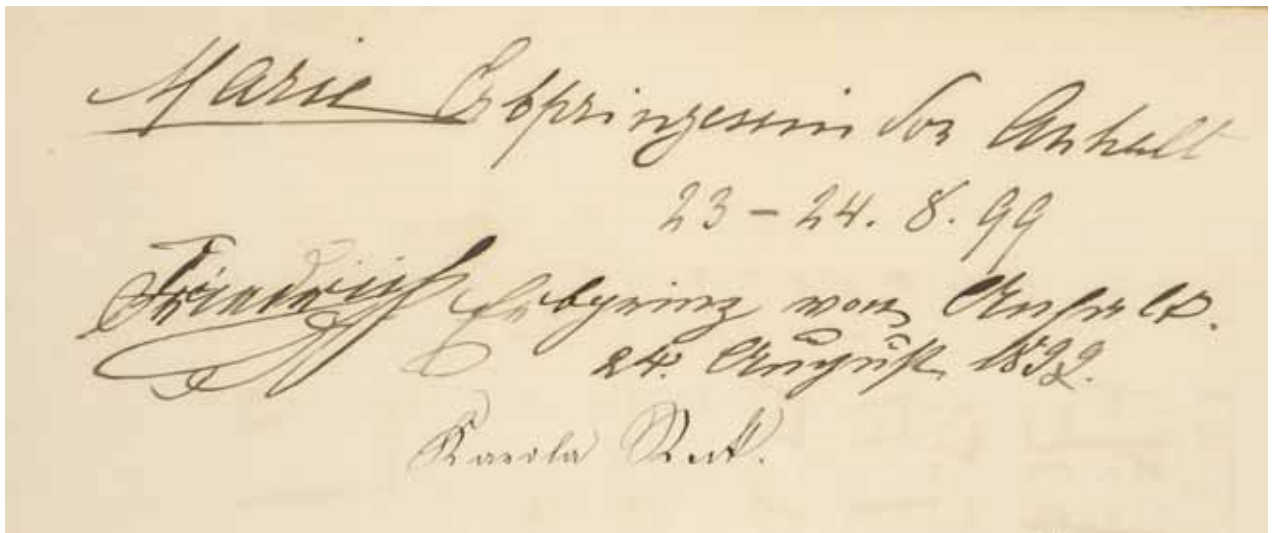 Marie Erbprinzessin von Anhalt
23 – 24. 8. 99
Friedrich Erbprinz von Anhalt.
24. August 1899.
Karola